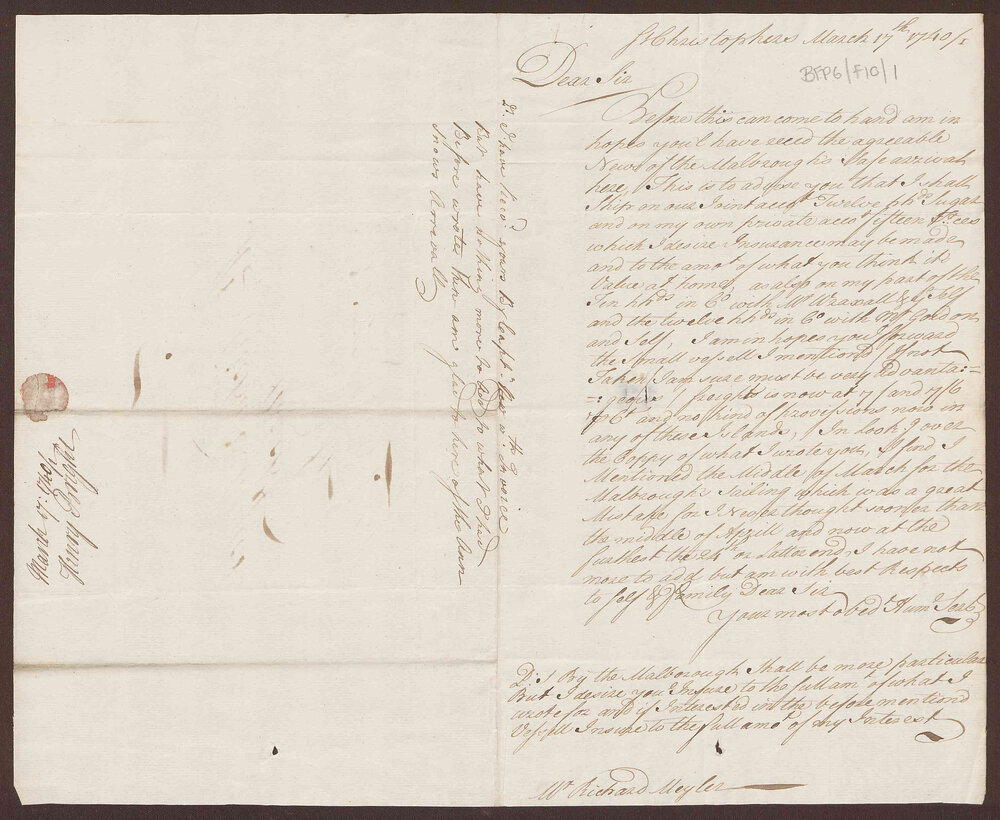 St Christophers March 17th 1740/1
BFP6/F10/1
Dear Sir
Before this can come to hand am in
hopes you'l have reced the agreeable
News of the Malboroughs safe arrival
here, This is to advise you that I shall
Ship on our Joint acct. Twelve hhds Sugar
and on my own private acct. fifteen
which I desire Insurance may be made
and to the amot. of what you think its
Value at home, as also on my part of the
Ten hhds in Co with Mr Wraxall & Self
and the twelve hhds in Co with Mr Gordon
and Self, I am in hopes you'l forward
the Small vessell I mentiond if not
Taken, I am sure must be very advanta:=
=:geous, freights is now at 7/ and 7/6
P Ct and no kind of Provissions now in
any of these Islands, In Look.g over
the Coppy of what I wrote you, I find I
Mentioned the Middle of March for the
Malboroughs Sailing which was a great
Mistake for I Never thought sooner than
the middle of Aprill and now at the
furthest the 24th or Latter end, I have not
more to add but am with best Respects
to Self & family Dear Sir
Your most obedt Humle Servt
P:S By the Malborough Shall be more particular
But I desire you Insure to the full amt of what I
wrote for and if Interested in the before mentiond
Vessell Insure to the full amot. of my Interest
Mr Richard Meyler
Sr. I have Recd. yours by Capt. with Invoice
But have nothing more to add to what I had
Before wrote then am glad to here of the Ann
Snows Arrevall